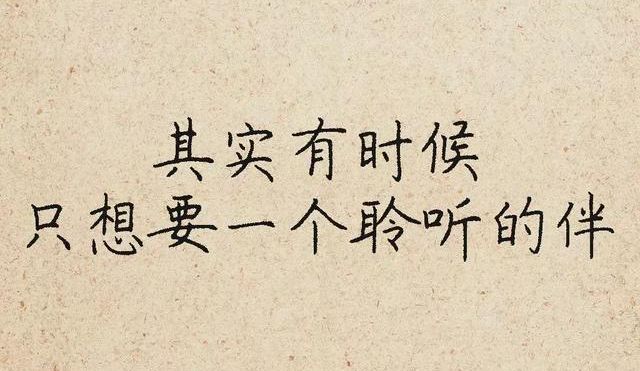 其实有时候
只想要一个聆听的伴